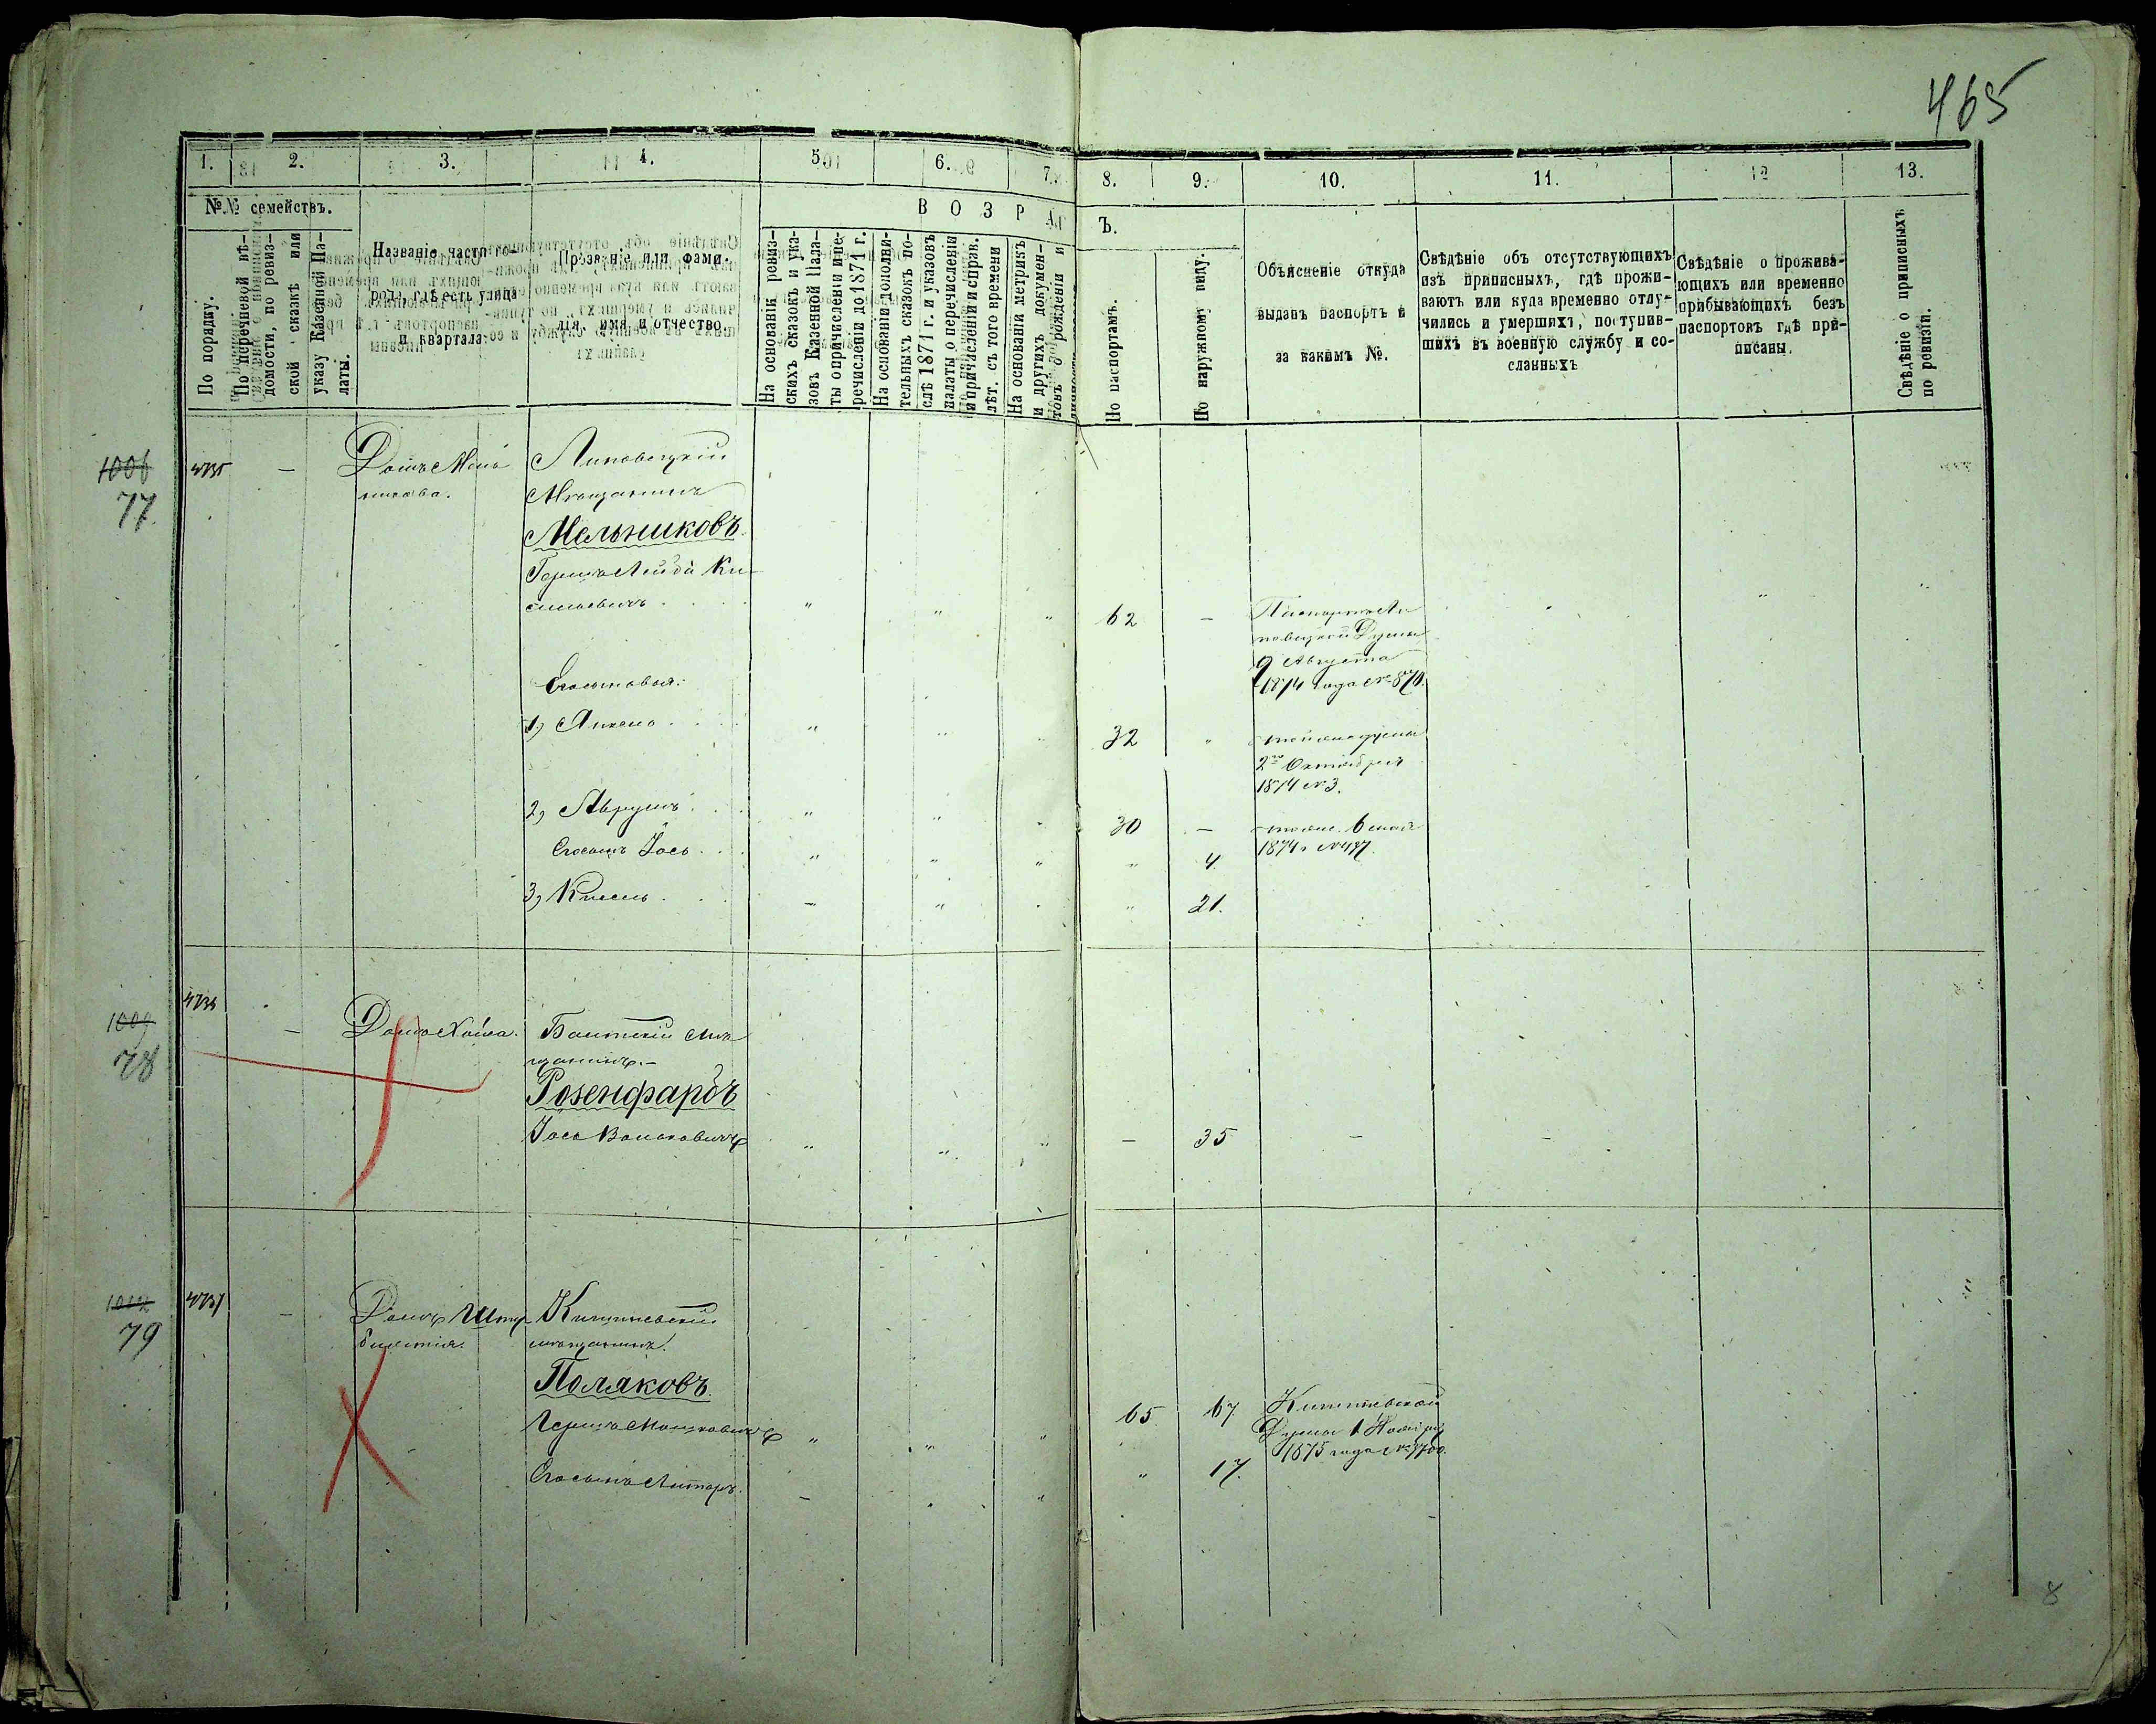 465
1. 2. 3. 4. 5. 6. 7. 8. 9. 10. 11. 12 13.
№№ семействъ.
В О З Р А
Ъ.
По порядку.
По перечневой вѣ-
домости, по ревиз-
ской сказкѣ или
указу Казенной Па-
латы.
Названіе части го-
рода, гдѣ есть улица
и квартала
Прозваніе или фами-
лія, имя и отчество.
На основаніи ревиз-
скихъ сказокъ и ука-
зовъ Казенной Пала-
ты о причисленіи и пе-
речисленіи до 1871 г.
На основаніи дополни-
тельныхъ сказокъ по-
слѣ 1871 г. и указовъ
палаты о перечисленіи
и причисленіи и справ.
лѣт. съ того времени
На основаніи метрикъ
и другихъ докумен-
товъ о рожденіи и
По паспортамъ.
По наружному виду.
Объясненіе откуда
выданъ паспортъ и
за какимъ №.
Свѣдѣніе объ отсутствующихъ
изъ приписныхъ, гдѣ прожи-
ваютъ или куда временно отлу-
чились и умершихъ, поступив-
шихъ въ военную службу и со-
сланныхъ
Свѣдѣніе о прожива-
ющихъ или временно
прибывающихъ безъ
паспортовъ гдѣ при-
писаны.
Свѣдѣніе о приписныхъ
по ревизіи.
1006
77
4735 — Домъ Мель
никова.
Липовецкій
Мѣщанинъ
Мельниковъ
Гершъ Лейба Ки-
сильевичъ . " " " 62 — Паспортъ Ли
повецкой Думы
9 Августа
1874 года № 870.
Сыновья:
1, Анкель . . . " " " 32 " той же думы
2го Октября
1874 №3.
2, Аврумъ . . . " " " 30 — тоже. 6 мая
1874 г №477.
Егосынъ Іось . . " " " " 4.
3, Кисель . . . — " " " 21.
1009
78
4736 — Домъ Хаима.
Балтскій мѣ
щанинъ.—
Розенфардъ
Іось Вольковичъ " " " — 35 — —
1012
79
4737 — Домъ
Кишиневскій
мѣщанинъ.
Поляковъ
Гершъ Мошковичъ " " " 65 67. Кишиневской
Думы 1 Ноября
1875 года № 7700.
Егосынъ Литаръ. — " " " 17.
8